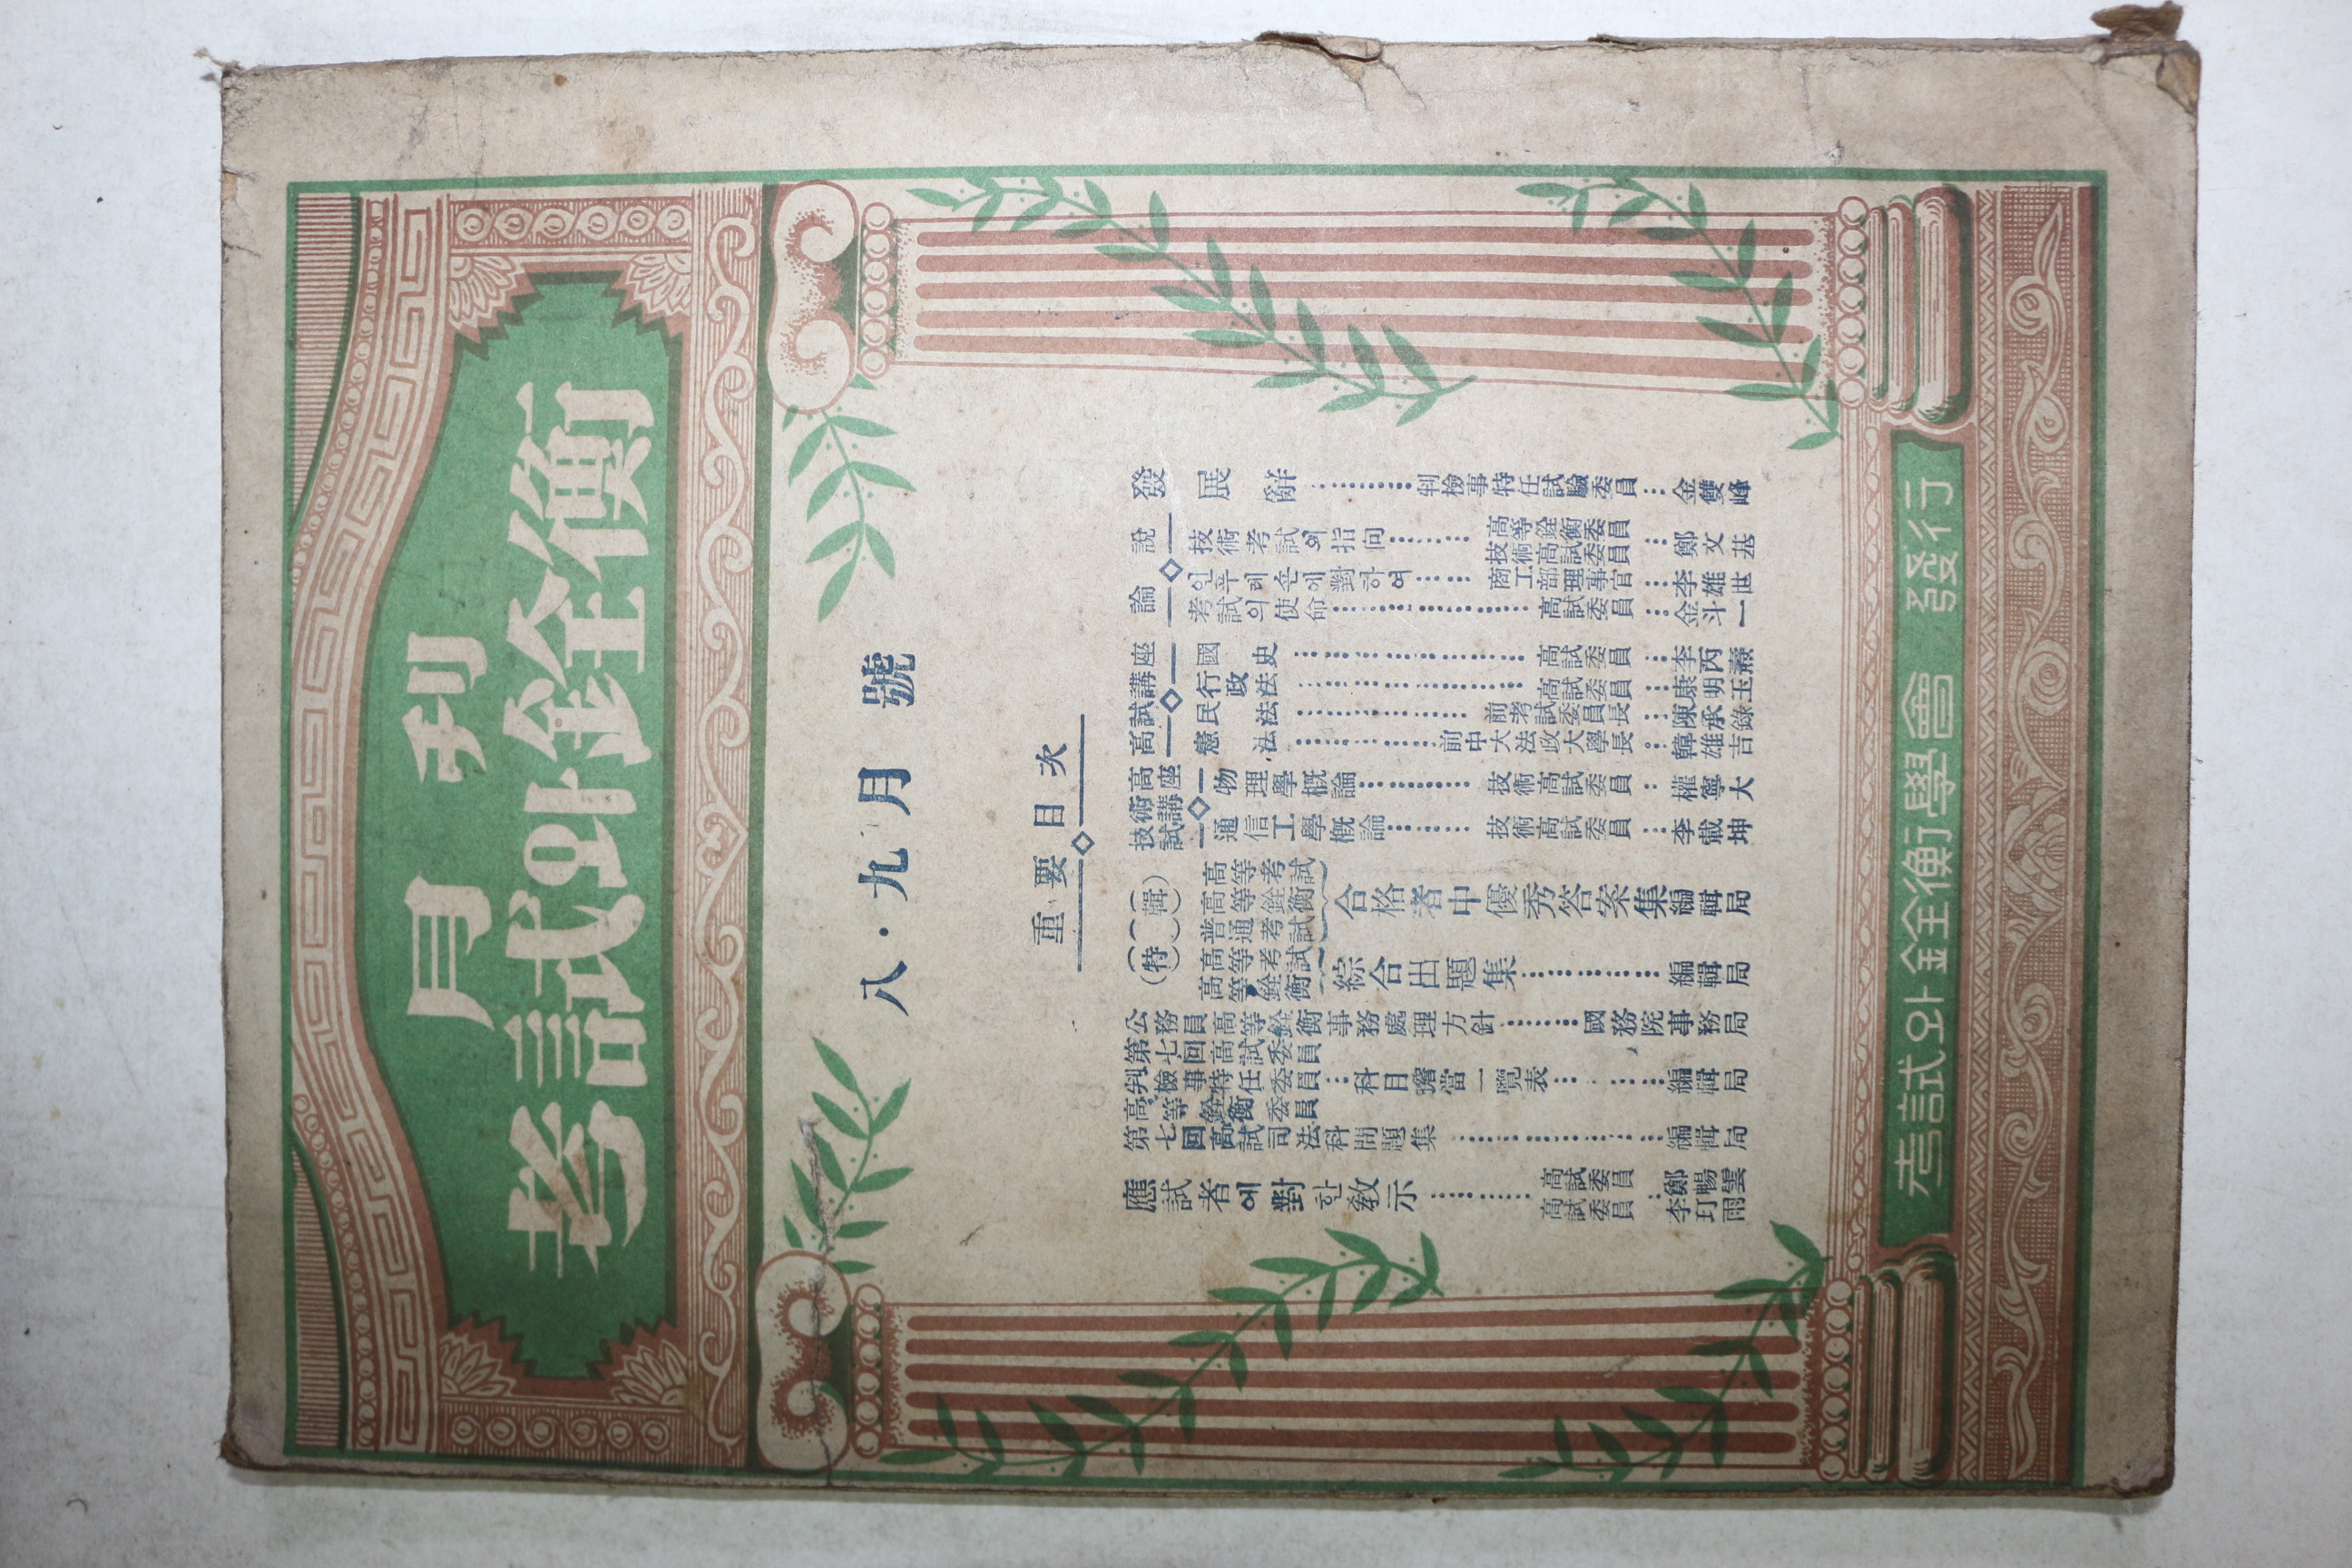 月刊
考試와銓衡
八・九月號
重要目次
發展辭…………判檢事特任試驗委員…金雙峰
論說
技術考試의指向………高等銓衡委員 技術高試委員…鄭文基
인푸레숀에對하여……商工部理事官…李雄世
考試의使命…………………高試委員…金斗一
高試講座
國史……………………高試委員…李丙燾
行政法……………………高試委員…康明玉
民法………………前考試委員長…陳承錄
憲法……………前中大法政大學長…韓雄吉
技術高試講座
物理學槪論…………技術高試委員…權寧大
通信工學槪論………技術高試委員…李載坤
(特輯)
高等考試 高等銓衡 普通考試 合格者中優秀答案集 編輯局
高等考試 高等銓衡試 綜合出題集……………編輯局
公務員高等銓衡事務處理方針………國務院事務局
第七回高試委員 判檢事特任委員 高等銓衡委員…科目擔當一覽表………編輯局
第七回高試司法科問題集…………………編輯局
應試者에對한敎示…………高試委員 鄭暢雲
高試委員 李玎雨
考試와銓衡學會 發行